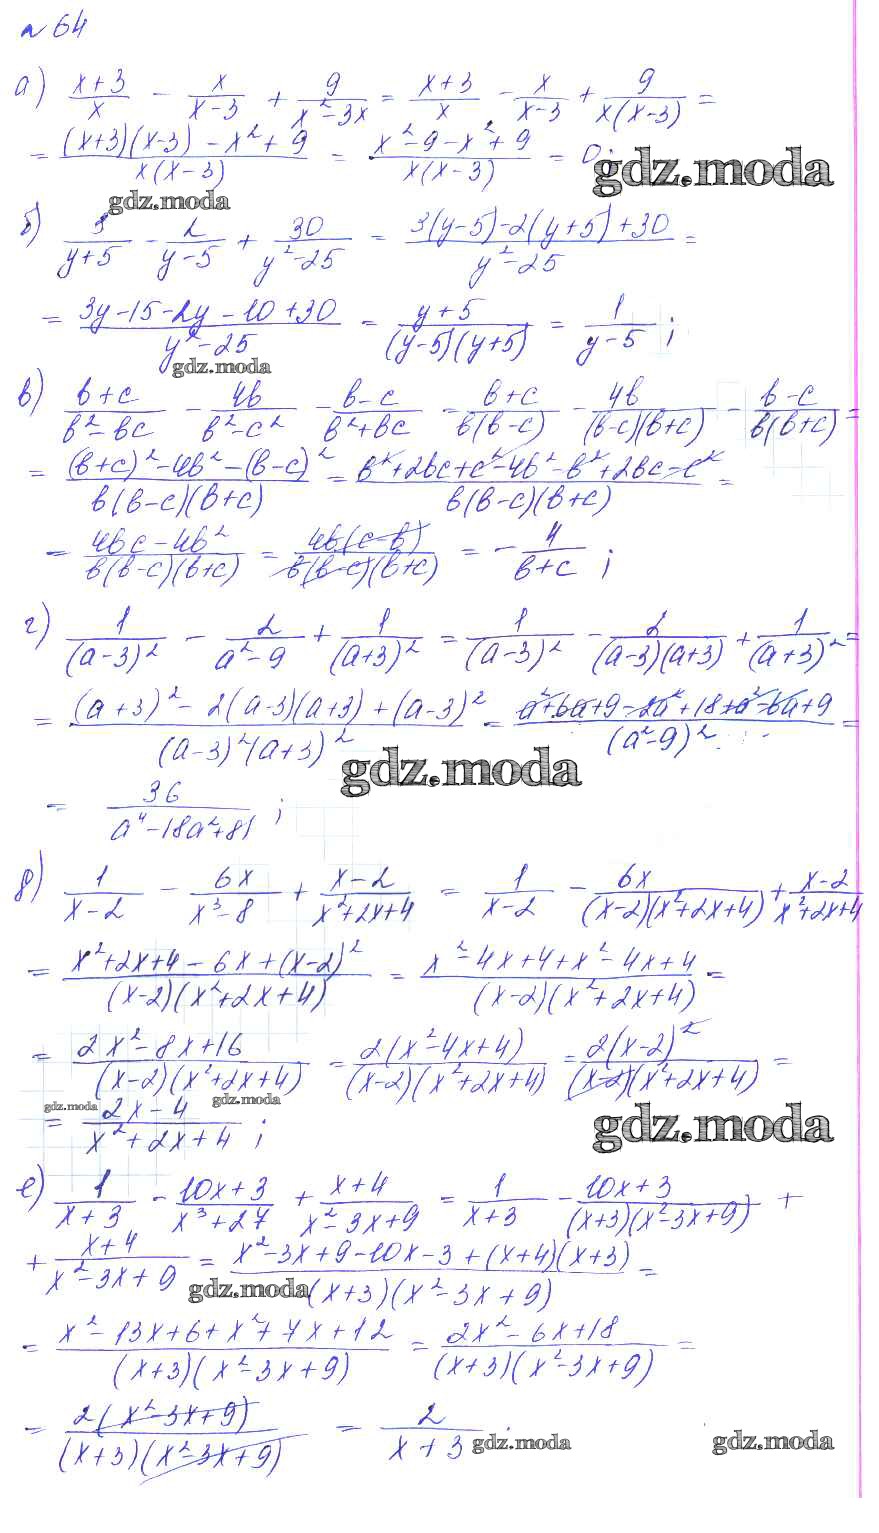 № 64
а) (x+3)/x − x/(x−3) + 9/(x²−3x) = (x+3)/x − x/(x−3) + 9/(x(x−3)) =
= ((x+3)(x−3) − x² + 9)/(x(x−3)) = (x²−9−x²+9)/(x(x−3)) = 0;
gdz.moda
gdz.moda
б) 3/(y+5) − 2/(y−5) + 30/(y²−25) = (3(y−5)−2(y+5)+30)/(y²−25) =
= (3y−15−2y−10+30)/(y²−25) = (y+5)/((y−5)(y+5)) = 1/(y−5);
gdz.moda
в) (b+c)/(b²−bc) − 4b/(b²−c²) − (b−c)/(b²+bc) = (b+c)/(b(b−c)) − 4b/((b−c)(b+c)) − (b−c)/(b(b+c)) =
= ((b+c)²−4b²−(b−c)²)/(b(b−c)(b+c)) = (b²+2bc+c²−4b²−b²+2bc−c²)/(b(b−c)(b+c)) =
= (4bc−4b²)/(b(b−c)(b+c)) = (4b(c−b))/(b(b−c)(b+c)) = −4/(b+c);
г) 1/(a−3)² − 2/(a²−9) + 1/(a+3)² = 1/(a−3)² − 2/((a−3)(a+3)) + 1/(a+3)² =
= ((a+3)² − 2(a−3)(a+3) + (a−3)²)/((a−3)²(a+3)²) = (a²+6a+9−2a²+18+a²−6a+9)/(a²−9)² =
gdz.moda
= 36/(a⁴−18a²+81);
д) 1/(x−2) − 6x/(x³−8) + (x−2)/(x²+2x+4) = 1/(x−2) − 6x/((x−2)(x²+2x+4)) + (x−2)/(x²+2x+4)
= (x²+2x+4−6x+(x−2)²)/((x−2)(x²+2x+4)) = (x²−4x+4+x²−4x+4)/((x−2)(x²+2x+4)) =
= (2x²−8x+16)/((x−2)(x²+2x+4)) = (2(x²−4x+4))/((x−2)(x²+2x+4)) = (2(x−2)²)/((x−2)(x²+2x+4)) =
gdz.moda
gdz.moda
= (2x−4)/(x²+2x+4);
gdz.moda
е) 1/(x+3) − (10x+3)/(x³+27) + (x+4)/(x²−3x+9) = 1/(x+3) − (10x+3)/((x+3)(x²−3x+9)) +
+ (x+4)/(x²−3x+9) = (x²−3x+9−10x−3+(x+4)(x+3))/((x+3)(x²−3x+9)) =
gdz.moda
= (x²−13x+6+x²+7x+12)/((x+3)(x²−3x+9)) = (2x²−6x+18)/((x+3)(x²−3x+9)) =
= (2(x²−3x+9))/((x+3)(x²−3x+9)) = 2/(x+3).
gdz.moda
gdz.moda